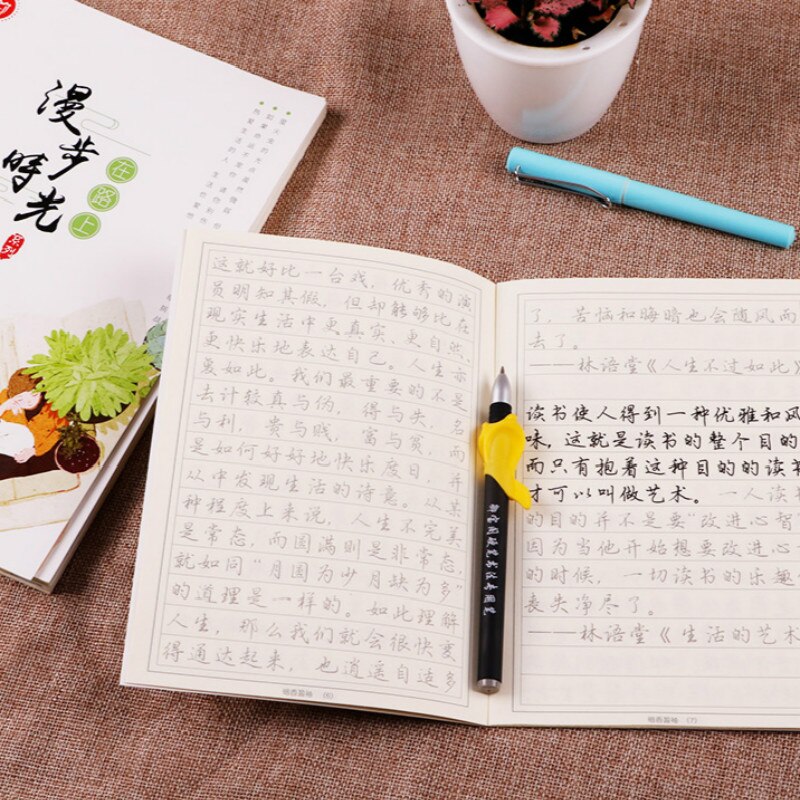 漫步
時光
在路上
系列
这就好比一台戏，优秀的演
员明知其假，但却能够比在
现实生活中更真实、更自然、
更快乐地表达自己。人生亦
复如此。我们最重要的不是
去计较真与伪，得与失，名
与利，贵与贱，富与贫，而
是如何好好地快乐度日，并
从中发现生活的诗意。从某
种程度上来说，人生不完美
是常态，而圆满则是非常态，
就如同“月圆为少月缺为多”
的道理是一样的。如此理解
人生，那么我们就会很快变
得通达起来，也逍遥自适多
(6)
了，苦恼和晦暗也会随风而
去了。
——林语堂《人生不过如此》
读书使人得到一种优雅和风
味，这就是读书的整个目的
而只有抱着这种目的的读书
才可以叫做艺术。一人读书
的目的并不是要“改进心智
因为当他开始想要改进心
的时候，一切读书的乐趣
丧失净尽了。
——林语堂《生活的艺术
(7)